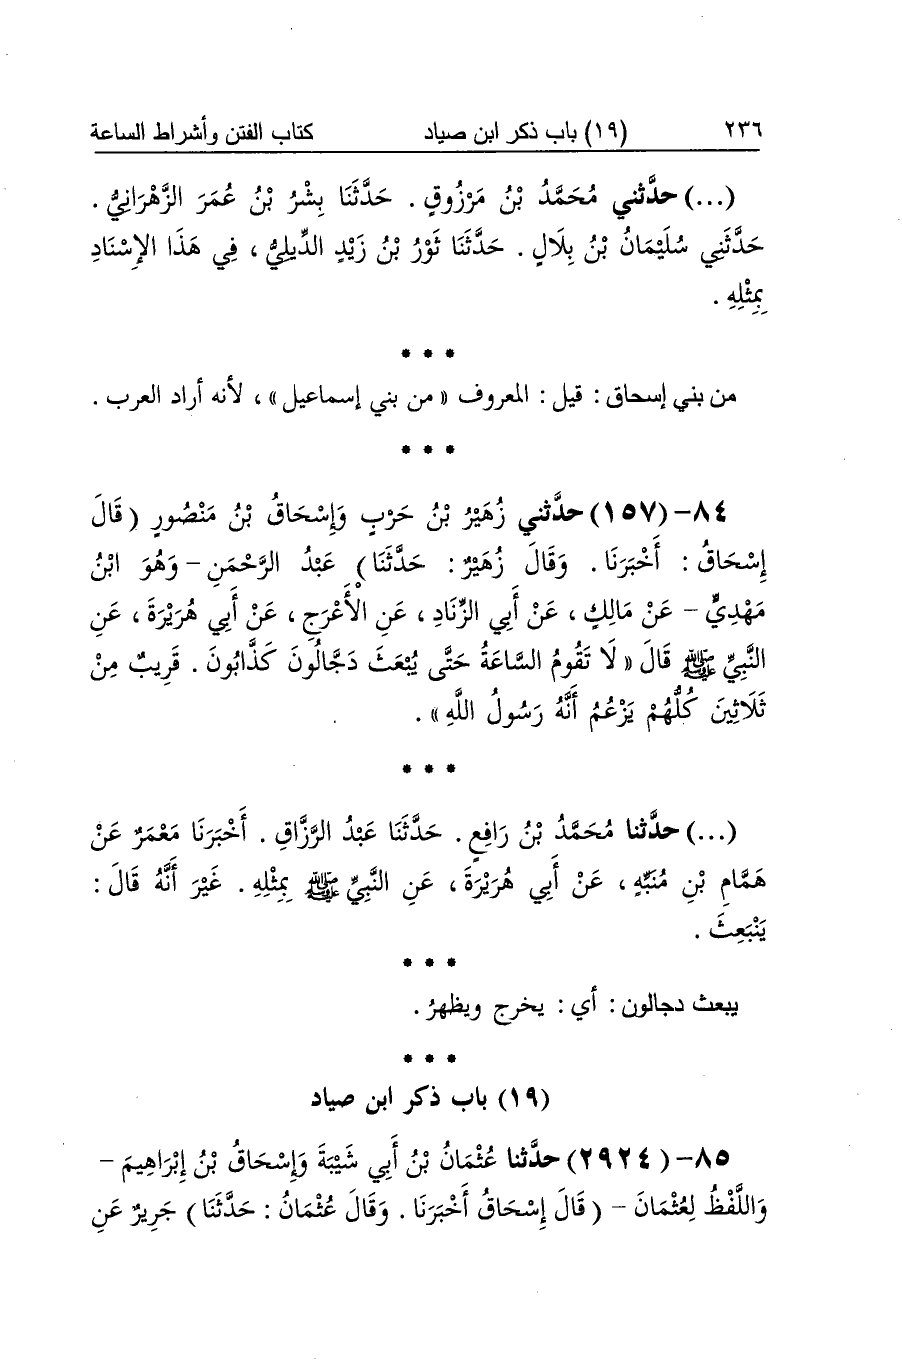 ٢٣٦ (١٩) باب ذكر ابن صياد كتاب الفتن وأشراط الساعة
(...) حدَّثني مُحَمَّدُ بْنُ مَرْزُوقٍ . حَدَّثَنَا بِشْرُ بْنُ عُمَرَ الزَّهْرَانِيُّ .
حَدَّثَنِي سُلَيْمَانُ بْنُ بِلَالٍ . حَدَّثَنَا ثَوْرُ بْنُ زَيْدٍ الدِّيلِيُّ ، فِي هَذَا الإِسْنَادِ
بِمِثْلِهِ .
* * *
من بني إسحاق : قيل : المعروف « من بني إسماعيل » ، لأنه أراد العرب .
* * *
٨٤- (١٥٧) حدَّثني زُهَيْرُ بْنُ حَرْبٍ وَإِسْحَاقُ بْنُ مَنْصُورٍ ( قَالَ
إِسْحَاقُ : أَخْبَرَنَا . وَقَالَ زُهَيْرٌ : حَدَّثَنَا ) عَبْدُ الرَّحْمَنِ - وَهُوَ ابْنُ
مَهْدِيٍّ - عَنْ مَالِكٍ ، عَنْ أَبِي الزِّنَادِ ، عَنِ الْأَعْرَجِ ، عَنْ أَبِي هُرَيْرَةَ ، عَنِ
النَّبِيِّ ﷺ قَالَ « لَا تَقُومُ السَّاعَةُ حَتَّى يُبْعَثَ دَجَّالُونَ كَذَّابُونَ . قَرِيبٌ مِنْ
ثَلَاثِينَ كُلُّهُمْ يَزْعُمُ أَنَّهُ رَسُولُ اللَّهِ » .
* * *
(...) حدَّثنا مُحَمَّدُ بْنُ رَافِعٍ . حَدَّثَنَا عَبْدُ الرَّزَّاقِ . أَخْبَرَنَا مَعْمَرٌ عَنْ
هَمَّامِ بْنِ مُنَبِّهٍ ، عَنْ أَبِي هُرَيْرَةَ ، عَنِ النَّبِيِّ ﷺ بِمِثْلِهِ . غَيْرَ أَنَّهُ قَالَ :
يَنْبَعِثَ .
* * *
يبعث دجالون : أي : يخرج ويظهرُ .
* * *
(١٩) باب ذكر ابن صياد
٨٥- ( ٢٩٢٤) حدَّثنا عُثْمَانُ بْنُ أَبِي شَيْبَةَ وَإِسْحَاقُ بْنُ إِبْرَاهِيمَ -
وَاللَّفْظُ لِعُثْمَانَ - ( قَالَ إِسْحَاقُ أَخْبَرَنَا . وَقَالَ عُثْمَانُ : حَدَّثَنَا ) جَرِيرٌ عَنِ